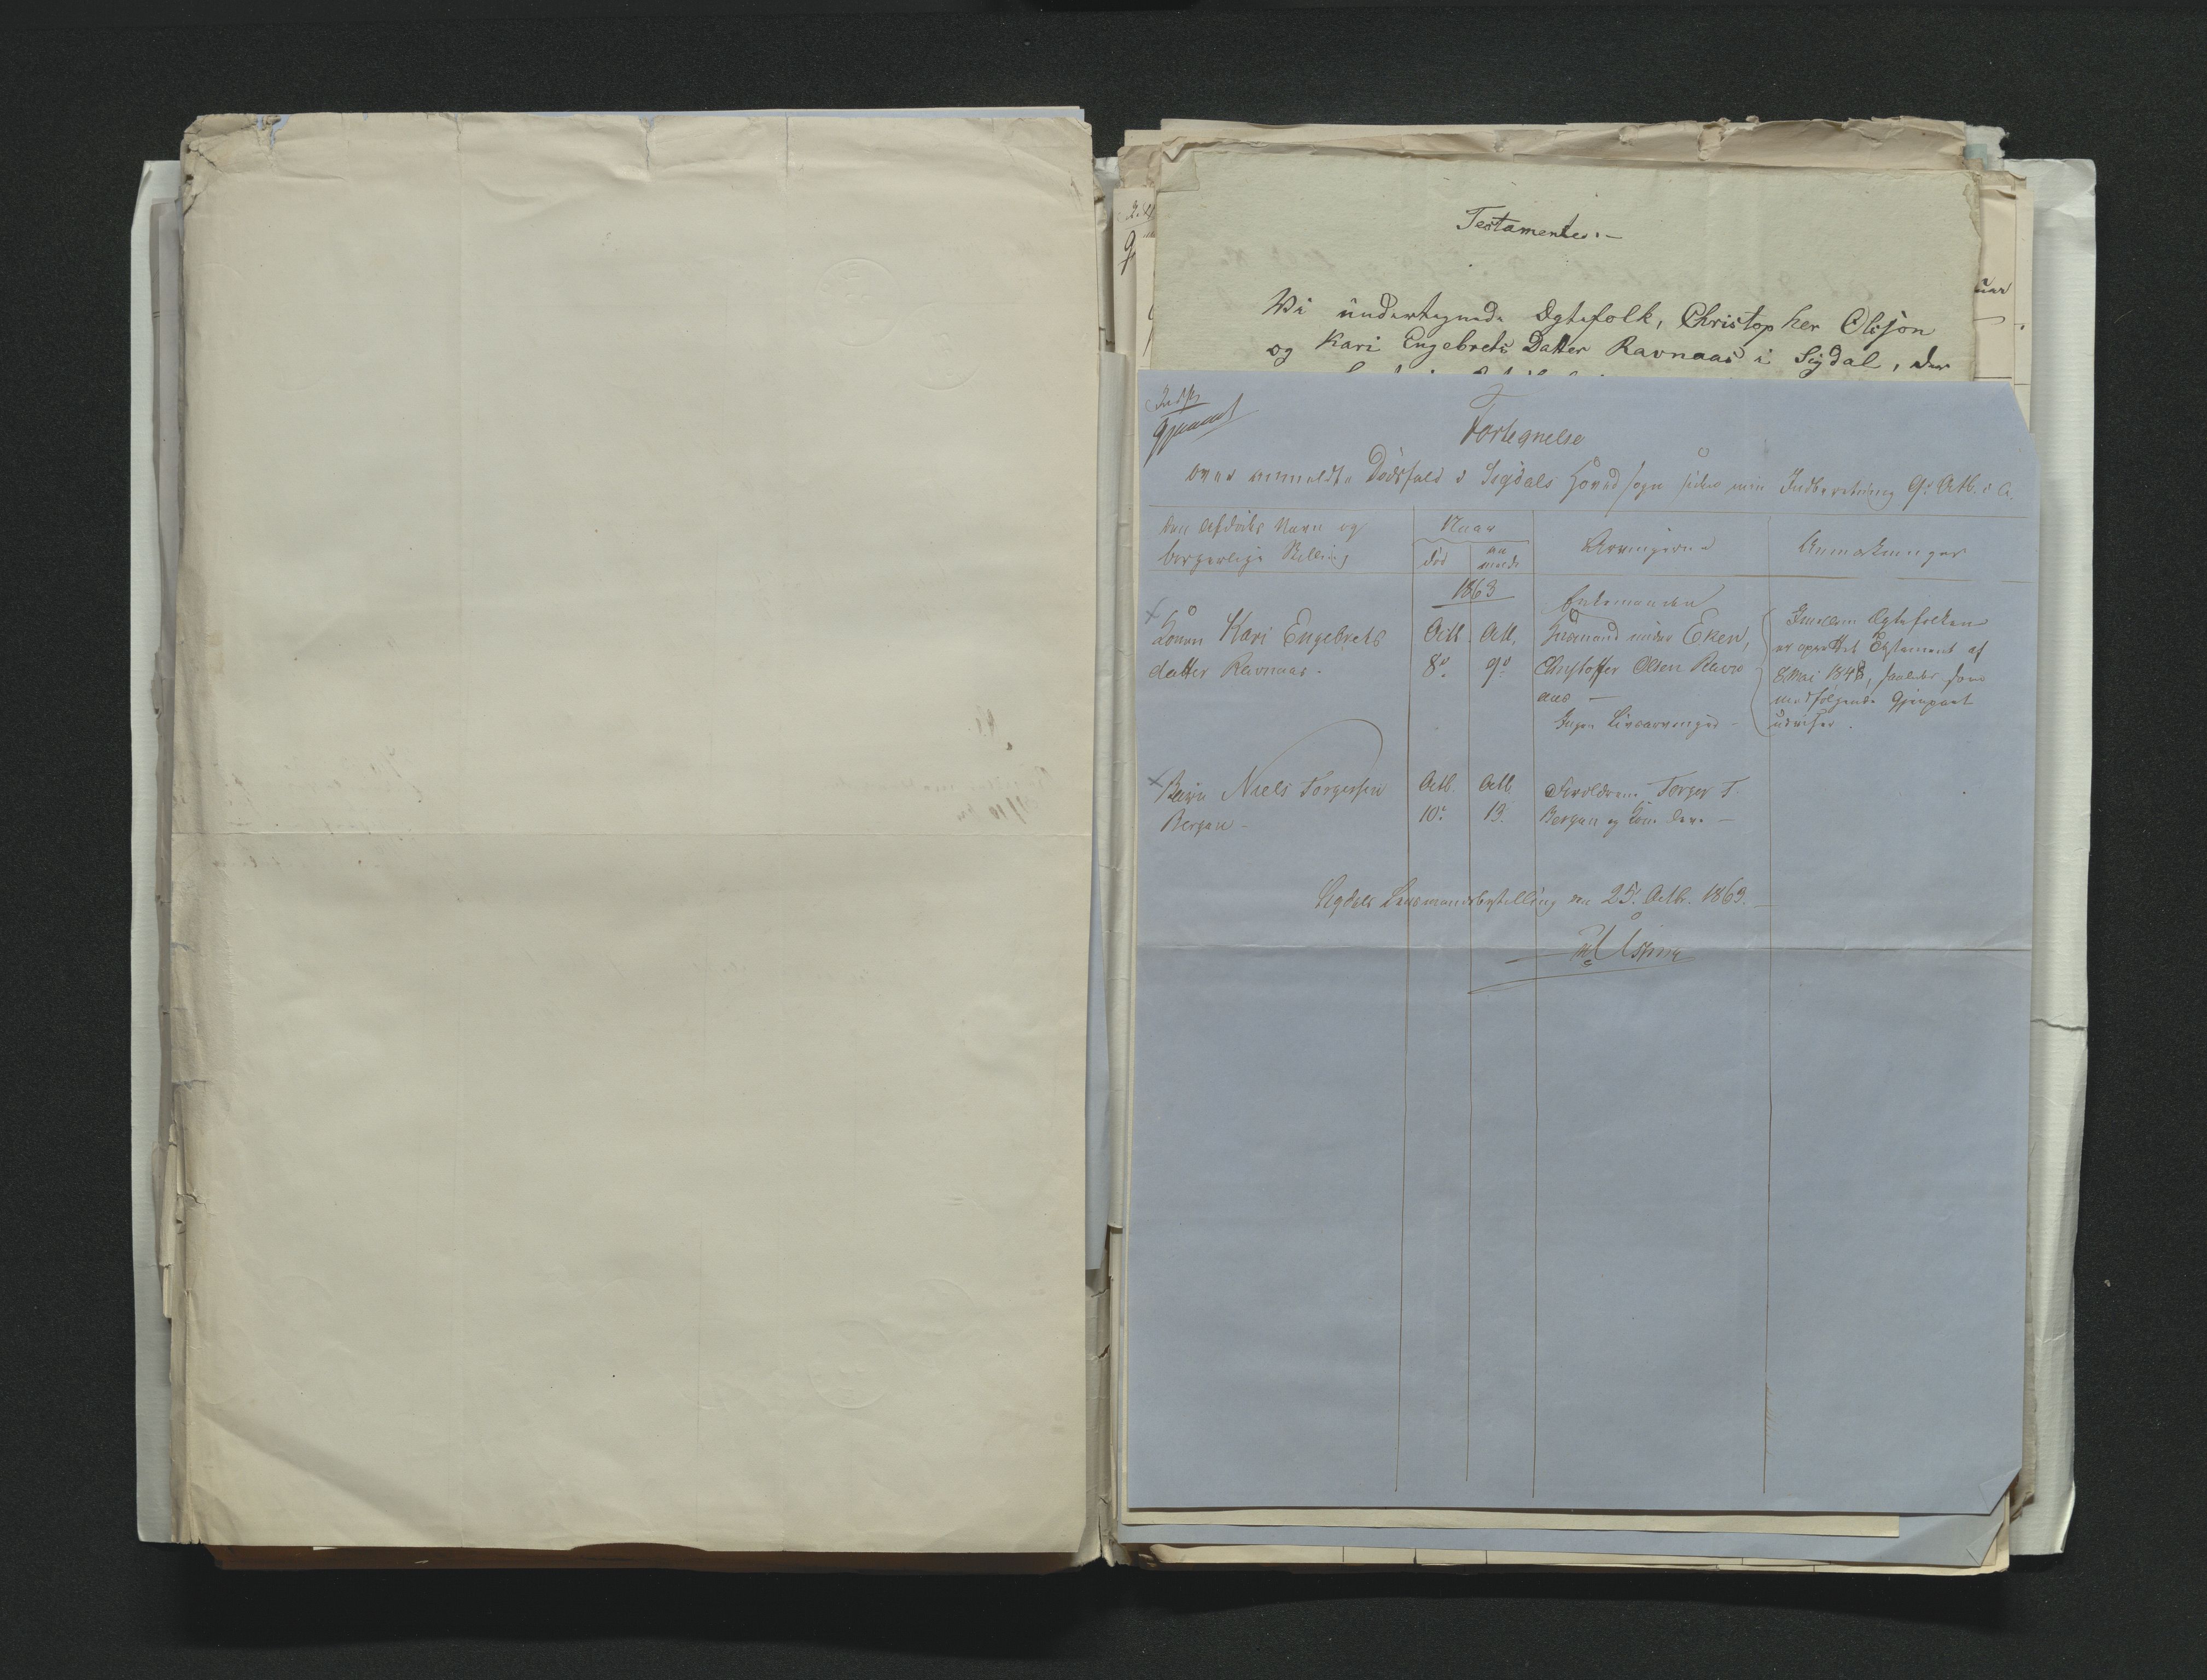 Testamente:—
Wi undertegnede Egtefolk, Christopher Olsson
og Kari Engebrets Datter Ravnaas i Sigdal, der
Gjennet
Fortegnelse
over anmeldte Dødsfald i Sigdals Hovedsogn siden min Indberetning 9d Octb. d. A.
den Afdødes Navn og
borgerlige Stilling
Naar
død
an
meldt
Arvingerne
Anmærkninger
1863
Enkemanden
Konen Kari Engebrets
datter Ravnaas.
Octb
8d
Octb.
9d
Husmand under Eken,
Christoffer Olsen Ravn
aas —
Ingen Livsarvinger —
Imellem Egtefolkene
er oprettet Testament af
8 Mai 1848, saaledes som
medfølgende Gjenpart
udviser.
Barn Niels Torgersen
Bergan —
Octb.
10d
Octb
13.
Forældrene Torger T.
Bergan og Kone dero —
Sigdals Lensmandsbestilling den 25. Octb. 1863.